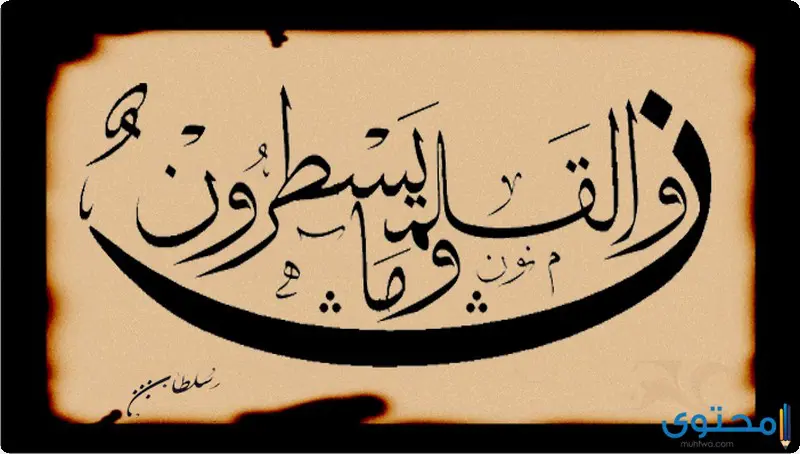 ن وَالقَلَمِ وَمَا يَسْطُرُونَ
نون
سلطان
محتوى
muhtwa.com